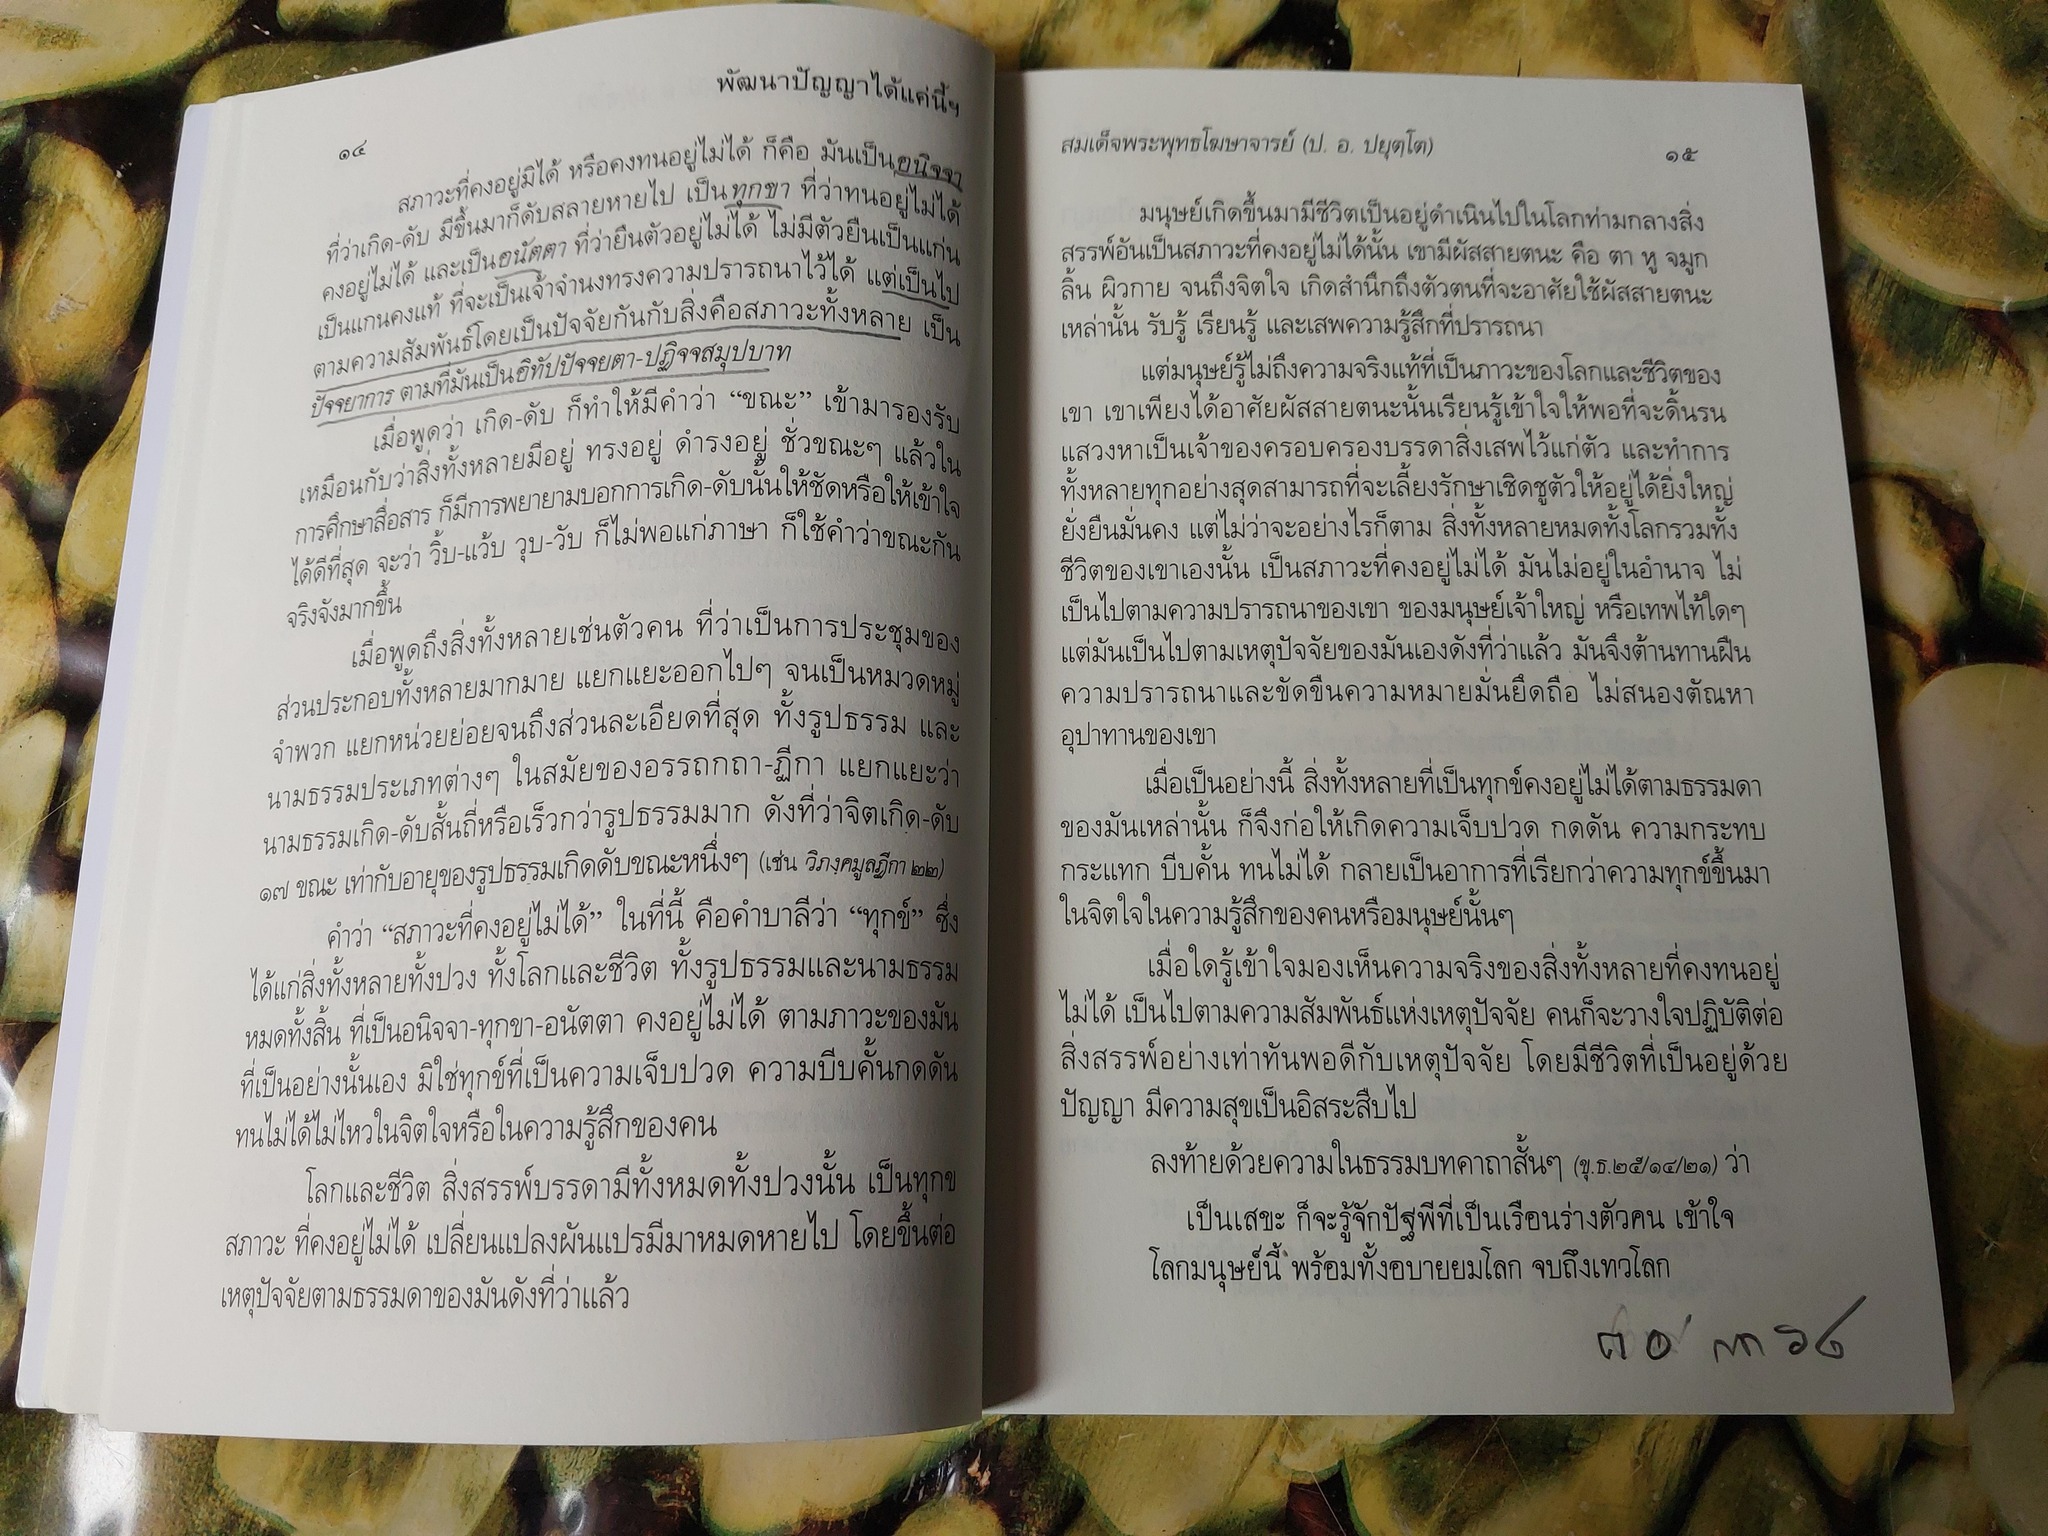 พัฒนาปัญญาได้แค่นี้ฯ
๑๔
สภาวะที่คงอยู่มิได้ หรือคงทนอยู่ไม่ได้ ก็คือ มันเป็นอนิจจา
ที่ว่าเกิด-ดับ มีขึ้นมาก็ดับสลายหายไป เป็นทุกขา ที่ว่าทนอยู่ไม่ได้
คงอยู่ไม่ได้ และเป็นอนัตตา ที่ว่ายืนตัวอยู่ไม่ได้ ไม่มีตัวยืนเป็นแก่น
เป็นแกนคงแท้ ที่จะเป็นเจ้าจำนงทรงความปรารถนาไว้ได้ แต่เป็นไป
ตามความสัมพันธ์โดยเป็นปัจจัยกันกับสิ่งคือสภาวะทั้งหลาย เป็น
ปัจจยาการ ตามที่มันเป็นอิทัปปัจจยตา-ปฏิจจสมุปบาท
เมื่อพูดว่า เกิด-ดับ ก็ทำให้มีคำว่า “ขณะ” เข้ามารองรับ
เหมือนกับว่าสิ่งทั้งหลายมีอยู่ ทรงอยู่ ดำรงอยู่ ชั่วขณะๆ แล้วใน
การศึกษาสื่อสาร ก็มีการพยายามบอกการเกิด-ดับนั้นให้ชัดหรือให้เข้าใจ
ได้ดีที่สุด จะว่า วิ้บ-แว้บ วุบ-วับ ก็ไม่พอแก่ภาษา ก็ใช้คำว่าขณะกัน
จริงจังมากขึ้น
เมื่อพูดถึงสิ่งทั้งหลายเช่นตัวคน ที่ว่าเป็นการประชุมของ
ส่วนประกอบทั้งหลายมากมาย แยกแยะออกไปๆ จนเป็นหมวดหมู่
จำพวก แยกหน่วยย่อยจนถึงส่วนละเอียดที่สุด ทั้งรูปธรรม และ
นามธรรมประเภทต่างๆ ในสมัยของอรรถกถา-ฎีกา แยกแยะว่า
นามธรรมเกิด-ดับสั้นถี่หรือเร็วกว่ารูปธรรมมาก ดังที่ว่าจิตเกิด-ดับ
๑๗ ขณะ เท่ากับอายุของรูปธรรมเกิดดับขณะหนึ่งๆ (เช่น วิภงฺคมูลฎีกา ๒๒)
คำว่า “สภาวะที่คงอยู่ไม่ได้” ในที่นี้ คือคำบาลีว่า “ทุกข์” ซึ่ง
ได้แก่สิ่งทั้งหลายทั้งปวง ทั้งโลกและชีวิต ทั้งรูปธรรมและนามธรรม
หมดทั้งสิ้น ที่เป็นอนิจจา-ทุกขา-อนัตตา คงอยู่ไม่ได้ ตามภาวะของมัน
ที่เป็นอย่างนั้นเอง มิใช่ทุกข์ที่เป็นความเจ็บปวด ความบีบคั้นกดดัน
ทนไม่ได้ไม่ไหวในจิตใจหรือในความรู้สึกของคน
โลกและชีวิต สิ่งสรรพ์บรรดามีทั้งหมดทั้งปวงนั้น เป็นทุกข
สภาวะ ที่คงอยู่ไม่ได้ เปลี่ยนแปลงผันแปรมีมาหมดหายไป โดยขึ้นต่อ
เหตุปัจจัยตามธรรมดาของมันดังที่ว่าแล้ว
สมเด็จพระพุทธโฆษาจารย์ (ป. อ. ปยุตฺโต)
๑๕
มนุษย์เกิดขึ้นมามีชีวิตเป็นอยู่ดำเนินไปในโลกท่ามกลางสิ่ง
สรรพ์อันเป็นสภาวะที่คงอยู่ไม่ได้นั้น เขามีผัสสายตนะ คือ ตา หู จมูก
ลิ้น ผิวกาย จนถึงจิตใจ เกิดสำนึกถึงตัวตนที่จะอาศัยใช้ผัสสายตนะ
เหล่านั้น รับรู้ เรียนรู้ และเสพความรู้สึกที่ปรารถนา
แต่มนุษย์รู้ไม่ถึงความจริงแท้ที่เป็นภาวะของโลกและชีวิตของ
เขา เขาเพียงได้อาศัยผัสสายตนะนั้นเรียนรู้เข้าใจให้พอที่จะดิ้นรน
แสวงหาเป็นเจ้าของครอบครองบรรดาสิ่งเสพไว้แก่ตัว และทำการ
ทั้งหลายทุกอย่างสุดสามารถที่จะเลี้ยงรักษาเชิดชูตัวให้อยู่ได้ยิ่งใหญ่
ยั่งยืนมั่นคง แต่ไม่ว่าจะอย่างไรก็ตาม สิ่งทั้งหลายหมดทั้งโลกรวมทั้ง
ชีวิตของเขาเองนั้น เป็นสภาวะที่คงอยู่ไม่ได้ มันไม่อยู่ในอำนาจ ไม่
เป็นไปตามความปรารถนาของเขา ของมนุษย์เจ้าใหญ่ หรือเทพไท้ใดๆ
แต่มันเป็นไปตามเหตุปัจจัยของมันเองดังที่ว่าแล้ว มันจึงต้านทานฝืน
ความปรารถนาและขัดขืนความหมายมั่นยึดถือ ไม่สนองตัณหา
อุปาทานของเขา
เมื่อเป็นอย่างนี้ สิ่งทั้งหลายที่เป็นทุกข์คงอยู่ไม่ได้ตามธรรมดา
ของมันเหล่านั้น ก็จึงก่อให้เกิดความเจ็บปวด กดดัน ความกระทบ
กระแทก บีบคั้น ทนไม่ได้ กลายเป็นอาการที่เรียกว่าความทุกข์ขึ้นมา
ในจิตใจในความรู้สึกของคนหรือมนุษย์นั้นๆ
เมื่อใดรู้เข้าใจมองเห็นความจริงของสิ่งทั้งหลายที่คงทนอยู่
ไม่ได้ เป็นไปตามความสัมพันธ์แห่งเหตุปัจจัย คนก็จะวางใจปฏิบัติต่อ
สิ่งสรรพ์อย่างเท่าทันพอดีกับเหตุปัจจัย โดยมีชีวิตที่เป็นอยู่ด้วย
ปัญญา มีความสุขเป็นอิสระสืบไป
ลงท้ายด้วยความในธรรมบทคาถาสั้นๆ (ขุ.ธ.๒๕/๑๔/๒๑) ว่า
เป็นเสขะ ก็จะรู้จักปัฐพีที่เป็นเรือนร่างตัวคน เข้าใจ
โลกมนุษย์นี้ พร้อมทั้งอบายยมโลก จบถึงเทวโลก